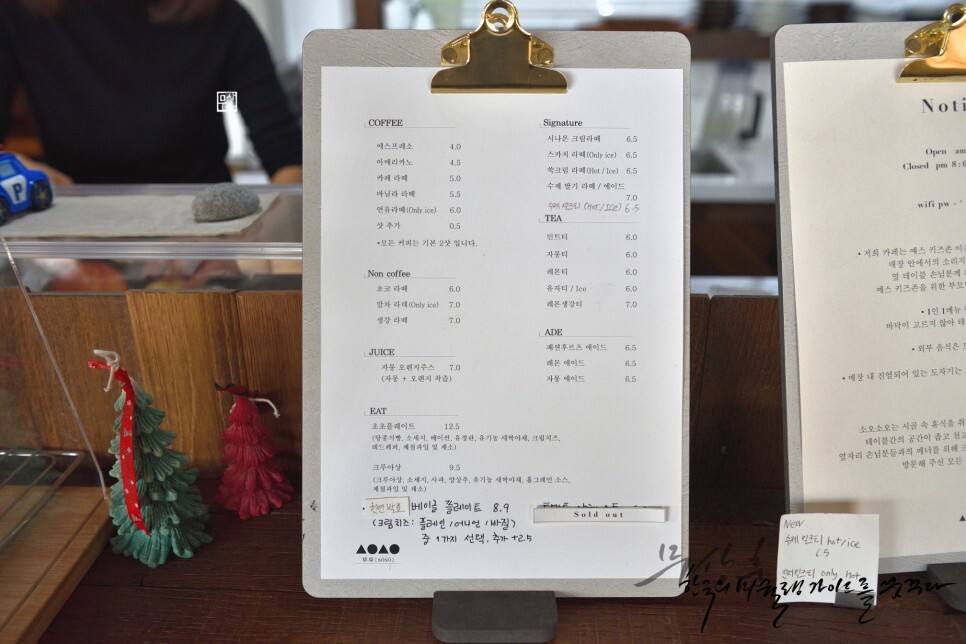 COFFEE
에스프레소 4.0
아메리카노 4.5
카페 라떼 5.0
바닐라 라떼 5.5
연유라떼(Only ice) 6.0
샷 추가 0.5
*모든 커피는 기본 2샷 입니다.
Non coffee
초코 라떼 6.0
말차 라떼(Only ice) 7.0
생강 라떼 7.0
JUICE
자몽 오렌지주스 7.0
(자몽 + 오렌지 착즙)
EAT
초초플레이트 12.5
(탕종식빵, 소세지, 베이컨, 유정란, 유기농 새싹야채, 크림치즈,
레드페퍼, 제철과일 및 채소)
크루아상 9.5
(크루아상, 소세지, 사과, 양상추, 유기농 새싹야채, 홀그레인 소스,
제철과일 및 채소)
베이글 플레이트 8.9
(크림치즈 : 플레인 / 어니언 / 바질)
중 1가지 선택, 추가 +2.5
Signature
시나몬 크림라떼 6.5
스카치 라떼(Only ice) 6.5
쑥크림 라떼(Hot / Ice) 6.5
수제 딸기 라떼 / 에이드
7.0
수제 밀크티 (Hot / ICE) 6.5
TEA
민트티 6.0
자몽티 6.0
레몬티 6.0
유자티 / Ice 6.0
레몬생강티 7.0
ADE
패션후르츠 에이드 6.5
레몬 에이드 6.5
자몽 에이드 6.5
Sold out
(SOSO)
Noti
Open am
Closed pm 8:
wifi pw - '
• 저희 카페는 예스 키즈존 이
매장 안에서의 소리지
옆 테이블 손님분께
예스 키즈존을 위한 부모
• 1인 1메뉴
바닥이 고르지 않아 테
• 외부 음식은
• 매장 내 진열되어 있는 도자기는
소오소오는 시골 속 휴식을 취
테이블간의 공간이 좁고
옆자리 손님분들과의 매너를 위해
방문해 주신 모든
New
수제 밀크티 hot/ice
6.5
only hot
P
무상초
한국의 미슐랭 가이드를 꿈꾸다